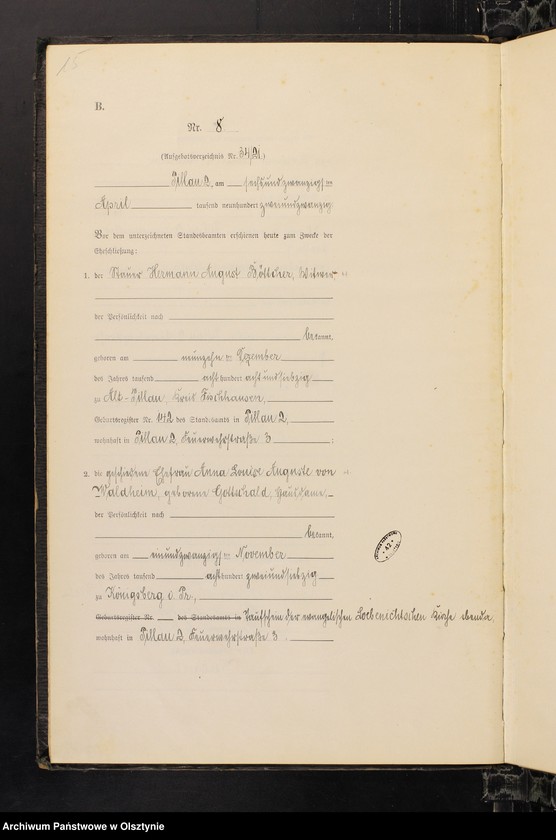 15
B.
Nr. 8
(Aufgebotsverzeichnis Nr. 34/21.)
Pillau 2, am sechsundzwanzigsten
April tausend neunhundert zweiundzwanzig
Vor dem unterzeichneten Standesbeamten erschienen heute zum Zwecke der
Eheschließung:
1. der Stauer Hermann August Böttcher, Witwer
der Persönlichkeit nach
bekannt,
geboren am neunzehnten Dezember
des Jahres tausend achthundert achtundsiebzig
zu Alt-Pillau Kreis Fischhausen,
Geburtsregister Nr. 142 des Standesamts in Pillau 2,
wohnhaft in Pillau 2, Feuerwehrstraße 3 ;
2. die geschiedene Ehefrau Anna Louise Auguste von
Waldheim, geborene Gottschald,
der Persönlichkeit nach
bekannt,
geboren am einundzwanzigsten November
des Jahres tausend achthundert zweiundsiebzig
zu Königsberg i. Pr.,
Geburtsregister Nr. des Standesamts in Taufschein der evangelischen Loebenichtschen Kirche ebenda,
wohnhaft in Pillau 2, Feuerwehrstraße 3
42
Archiwum Państwowe w Olsztynie